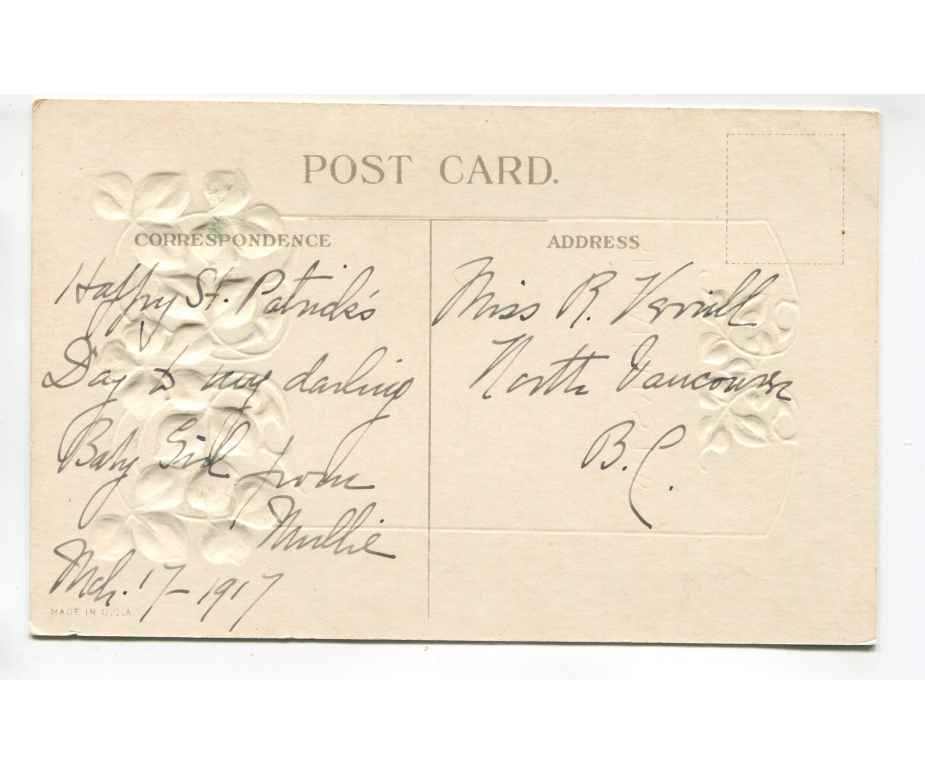 POST CARD.
CORRESPONDENCE
Happy St. Patrick's
Day to my darling
Baby Girl from
Mullie
Mch. 17 - 1917
MADE IN U.S.A.
ADDRESS
Miss R. Verrall
North Vancouver
B.C.